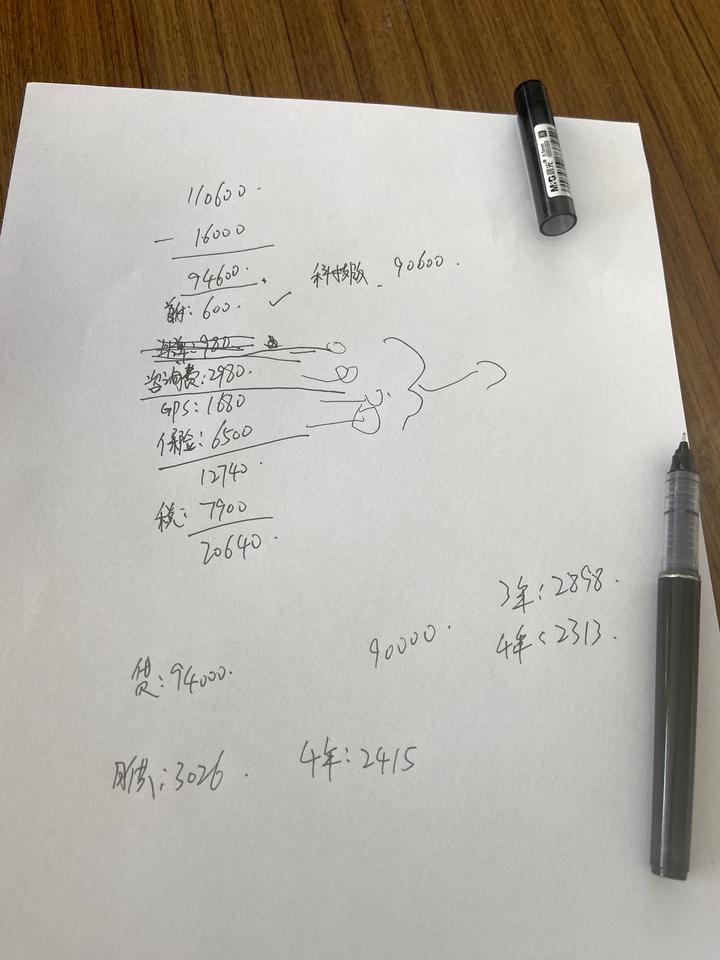 110600.
- 16000
94600.
科技版 - 90600.
首付: 600. ✓
咨询费: 2980.
GPS: 1680
保险: 6500
12740.
税: 7900
20640.
3年: 2898.
90000.
4年: 2313.
贷: 94000.
月供: 3026.
4年: 2415
M&G 晨光